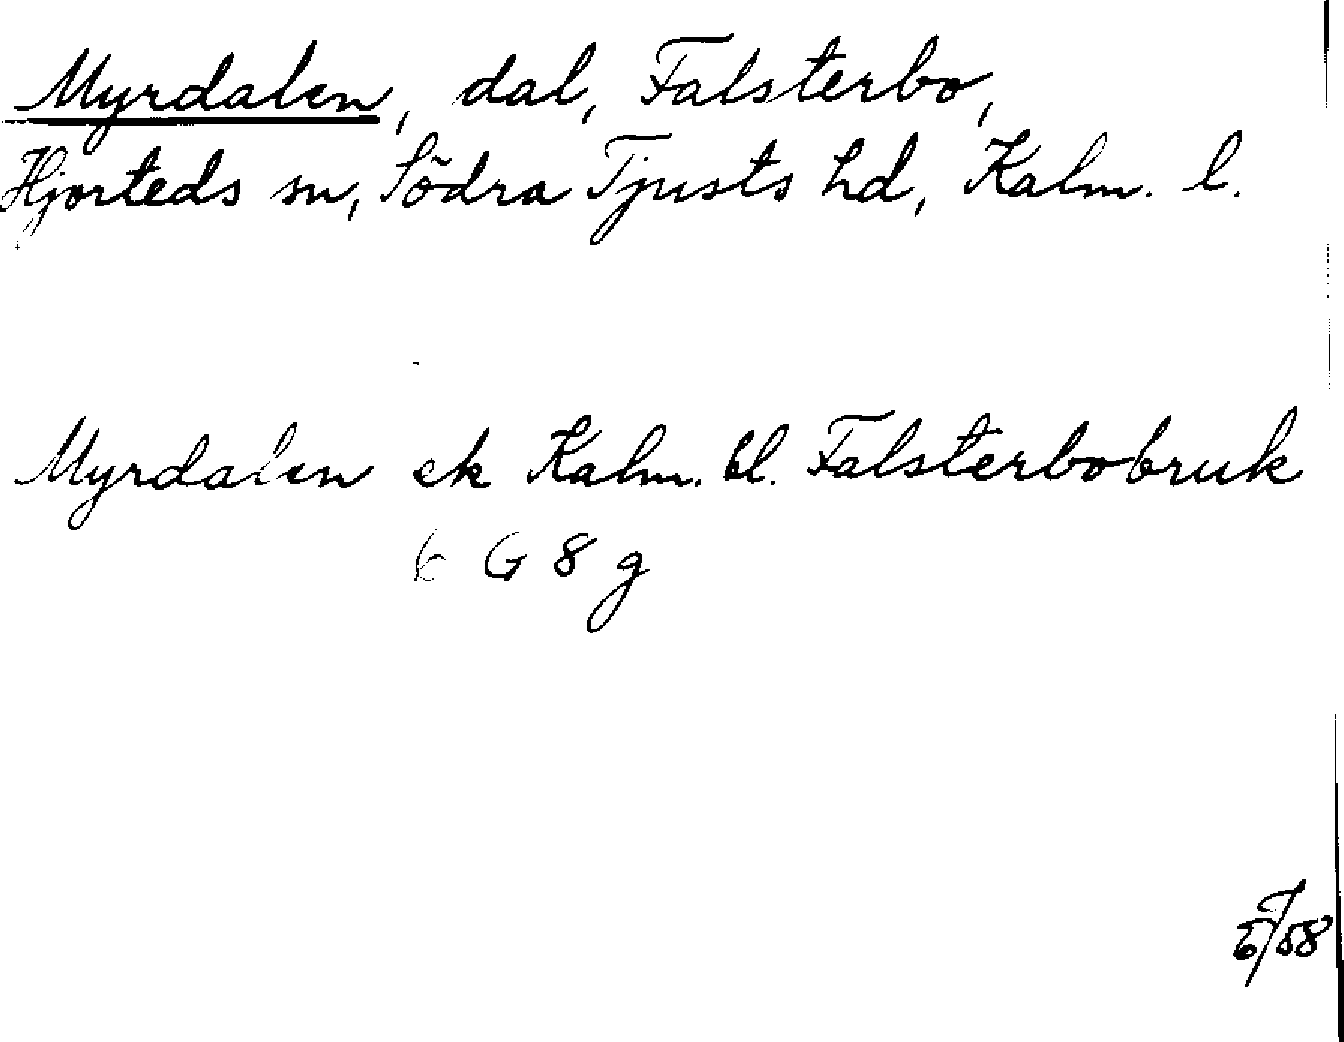 Myrdalen, dal, Falsterbo,
Hjorteds sn, Södra Tjusts hd, Kalm. l.
Myrdalen ek Kalm. bl. Falsterbobruk
6 G 8 g
/58